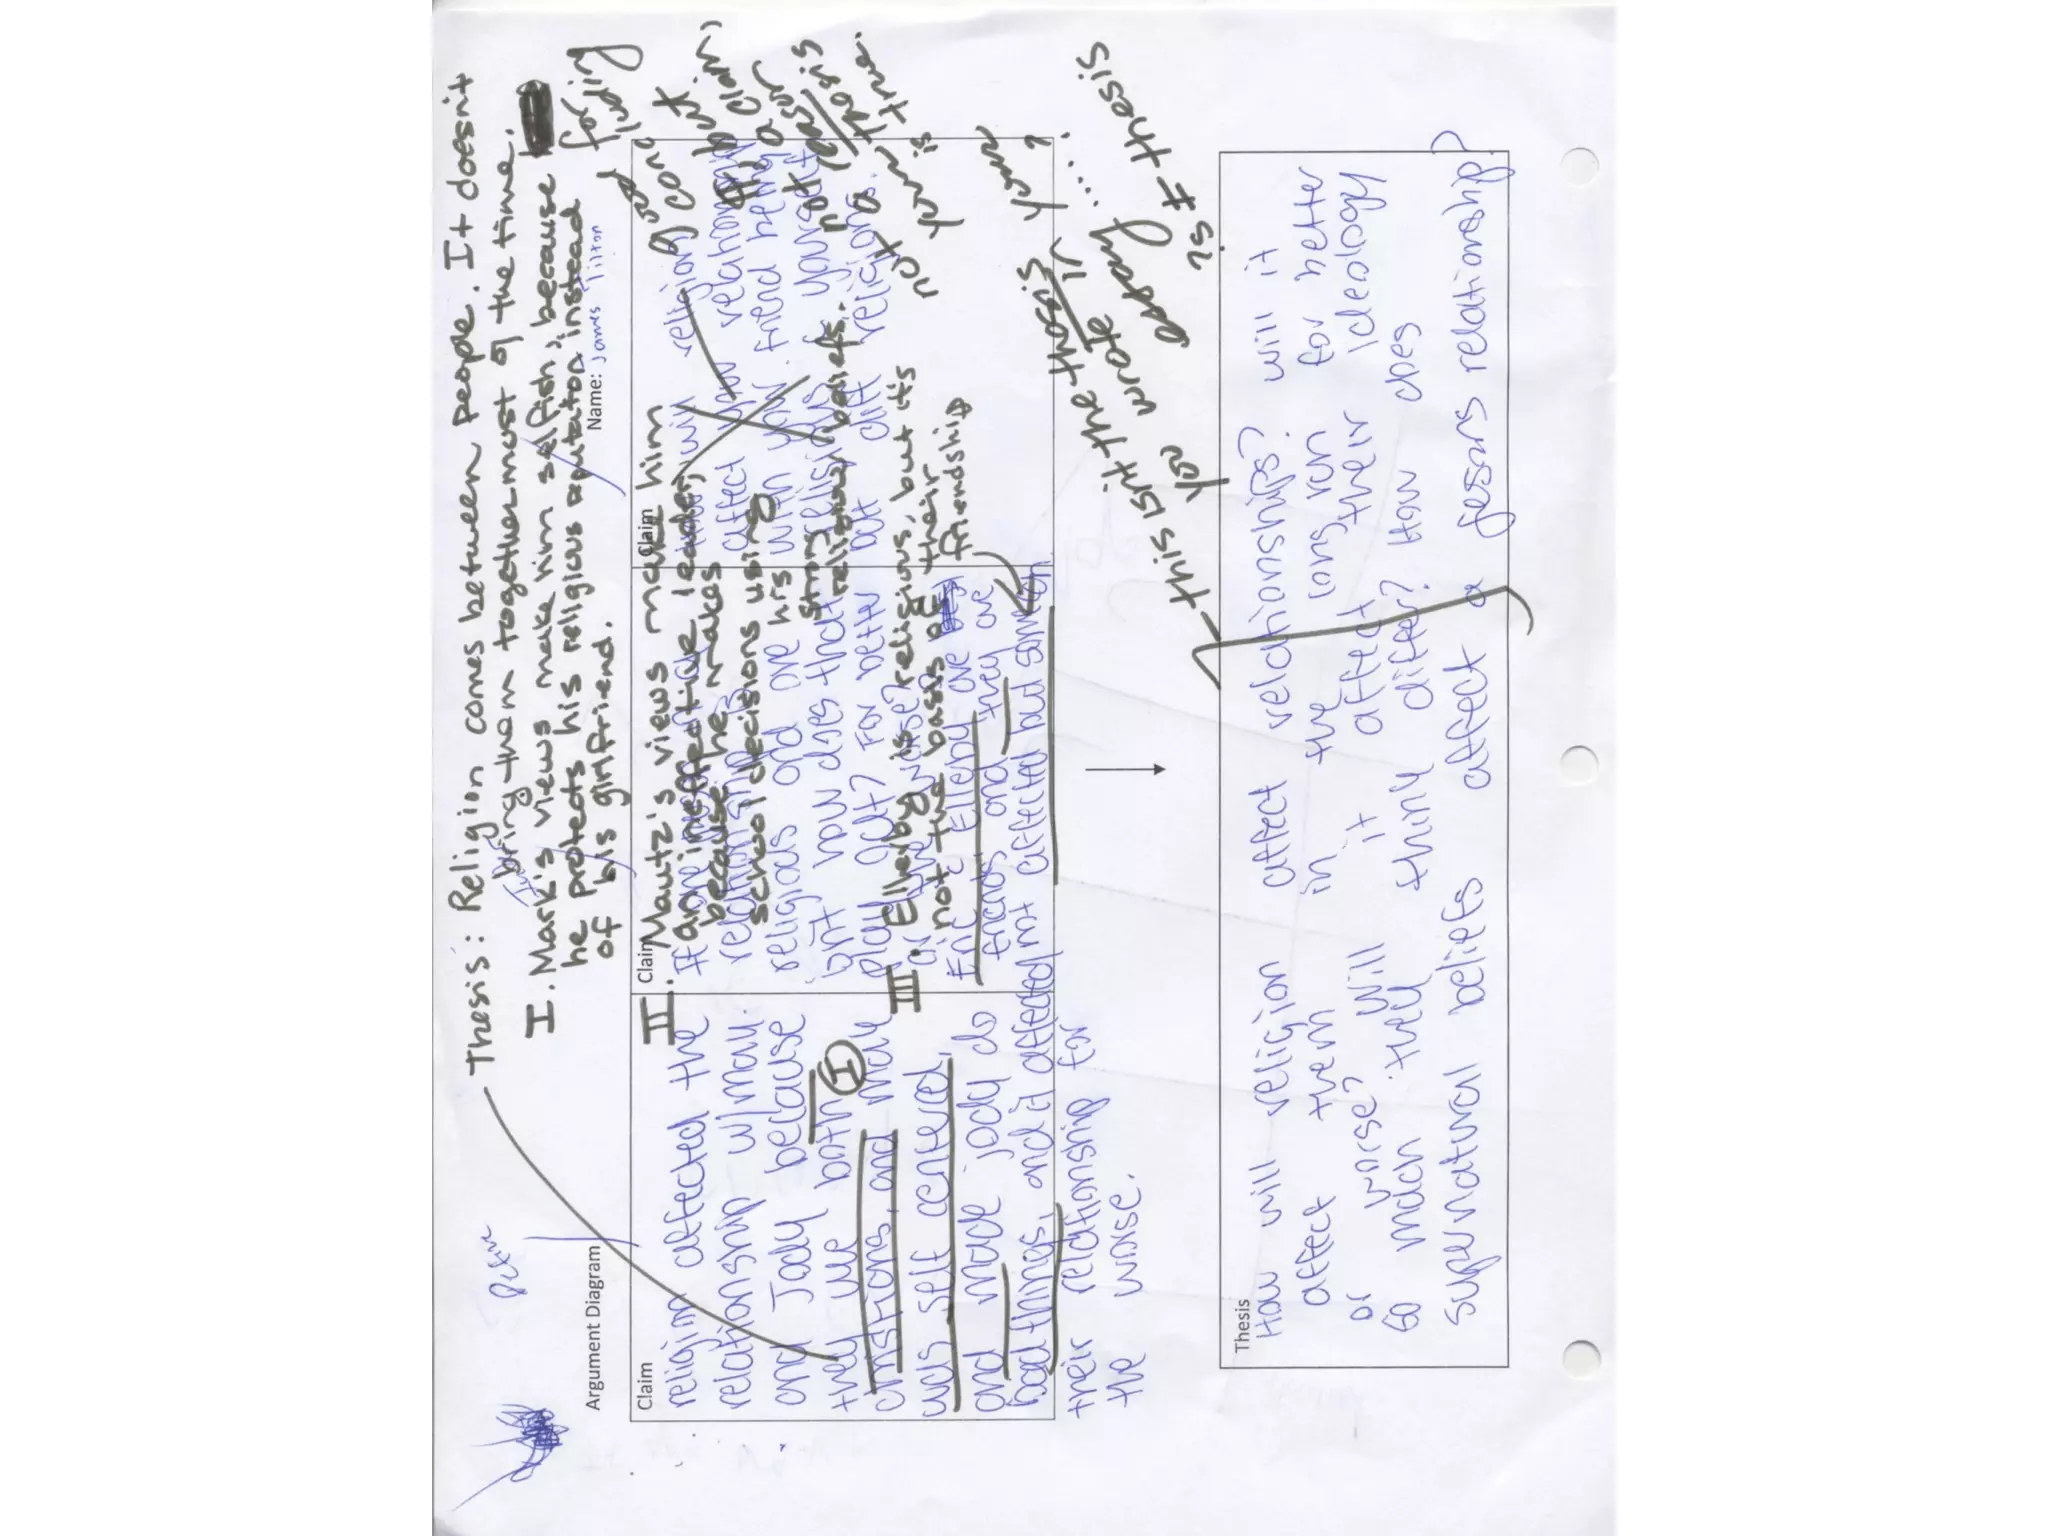 Thesis: Religion comes between people. It doesn't
bring them together most of the time.
I. Mark's views make him selfish, because
he protects his religious reputation instead
of his girlfriend.
for lying
Argument Diagram
Name: James Tilton
Claim
religion affected the
relationship w/mark.
and Jody because
they we both
christians, and mark
was self centered,
and made jody do
bad things, and it affected
their relationship for
the worse.
I
Claim
II. Mautz's views make him
an ineffective leader,
because he makes
school decisions using
his
strong
religious beliefs.
religious and one
isn't how does that
play out? For better
or the worse?
III. Ellerby is religious, but it's
not the basis of their
friendship
Eric & Ellerby are
friends and they are
not affected but somewhat
Claim
religion
affect your relationship
with your friend being
religious yourself
but diff religions.
good
but
it's a claim,
not
a
not your thesis
is true.
This isn't the thesis
you wrote
your
essay
is ≠ thesis
Thesis
How will religion affect relationships? will it
affect them in the long run for better
or worse? Will it affect their ideology
so much they think differ? How does
supernatural beliefs affect a persons relationship?